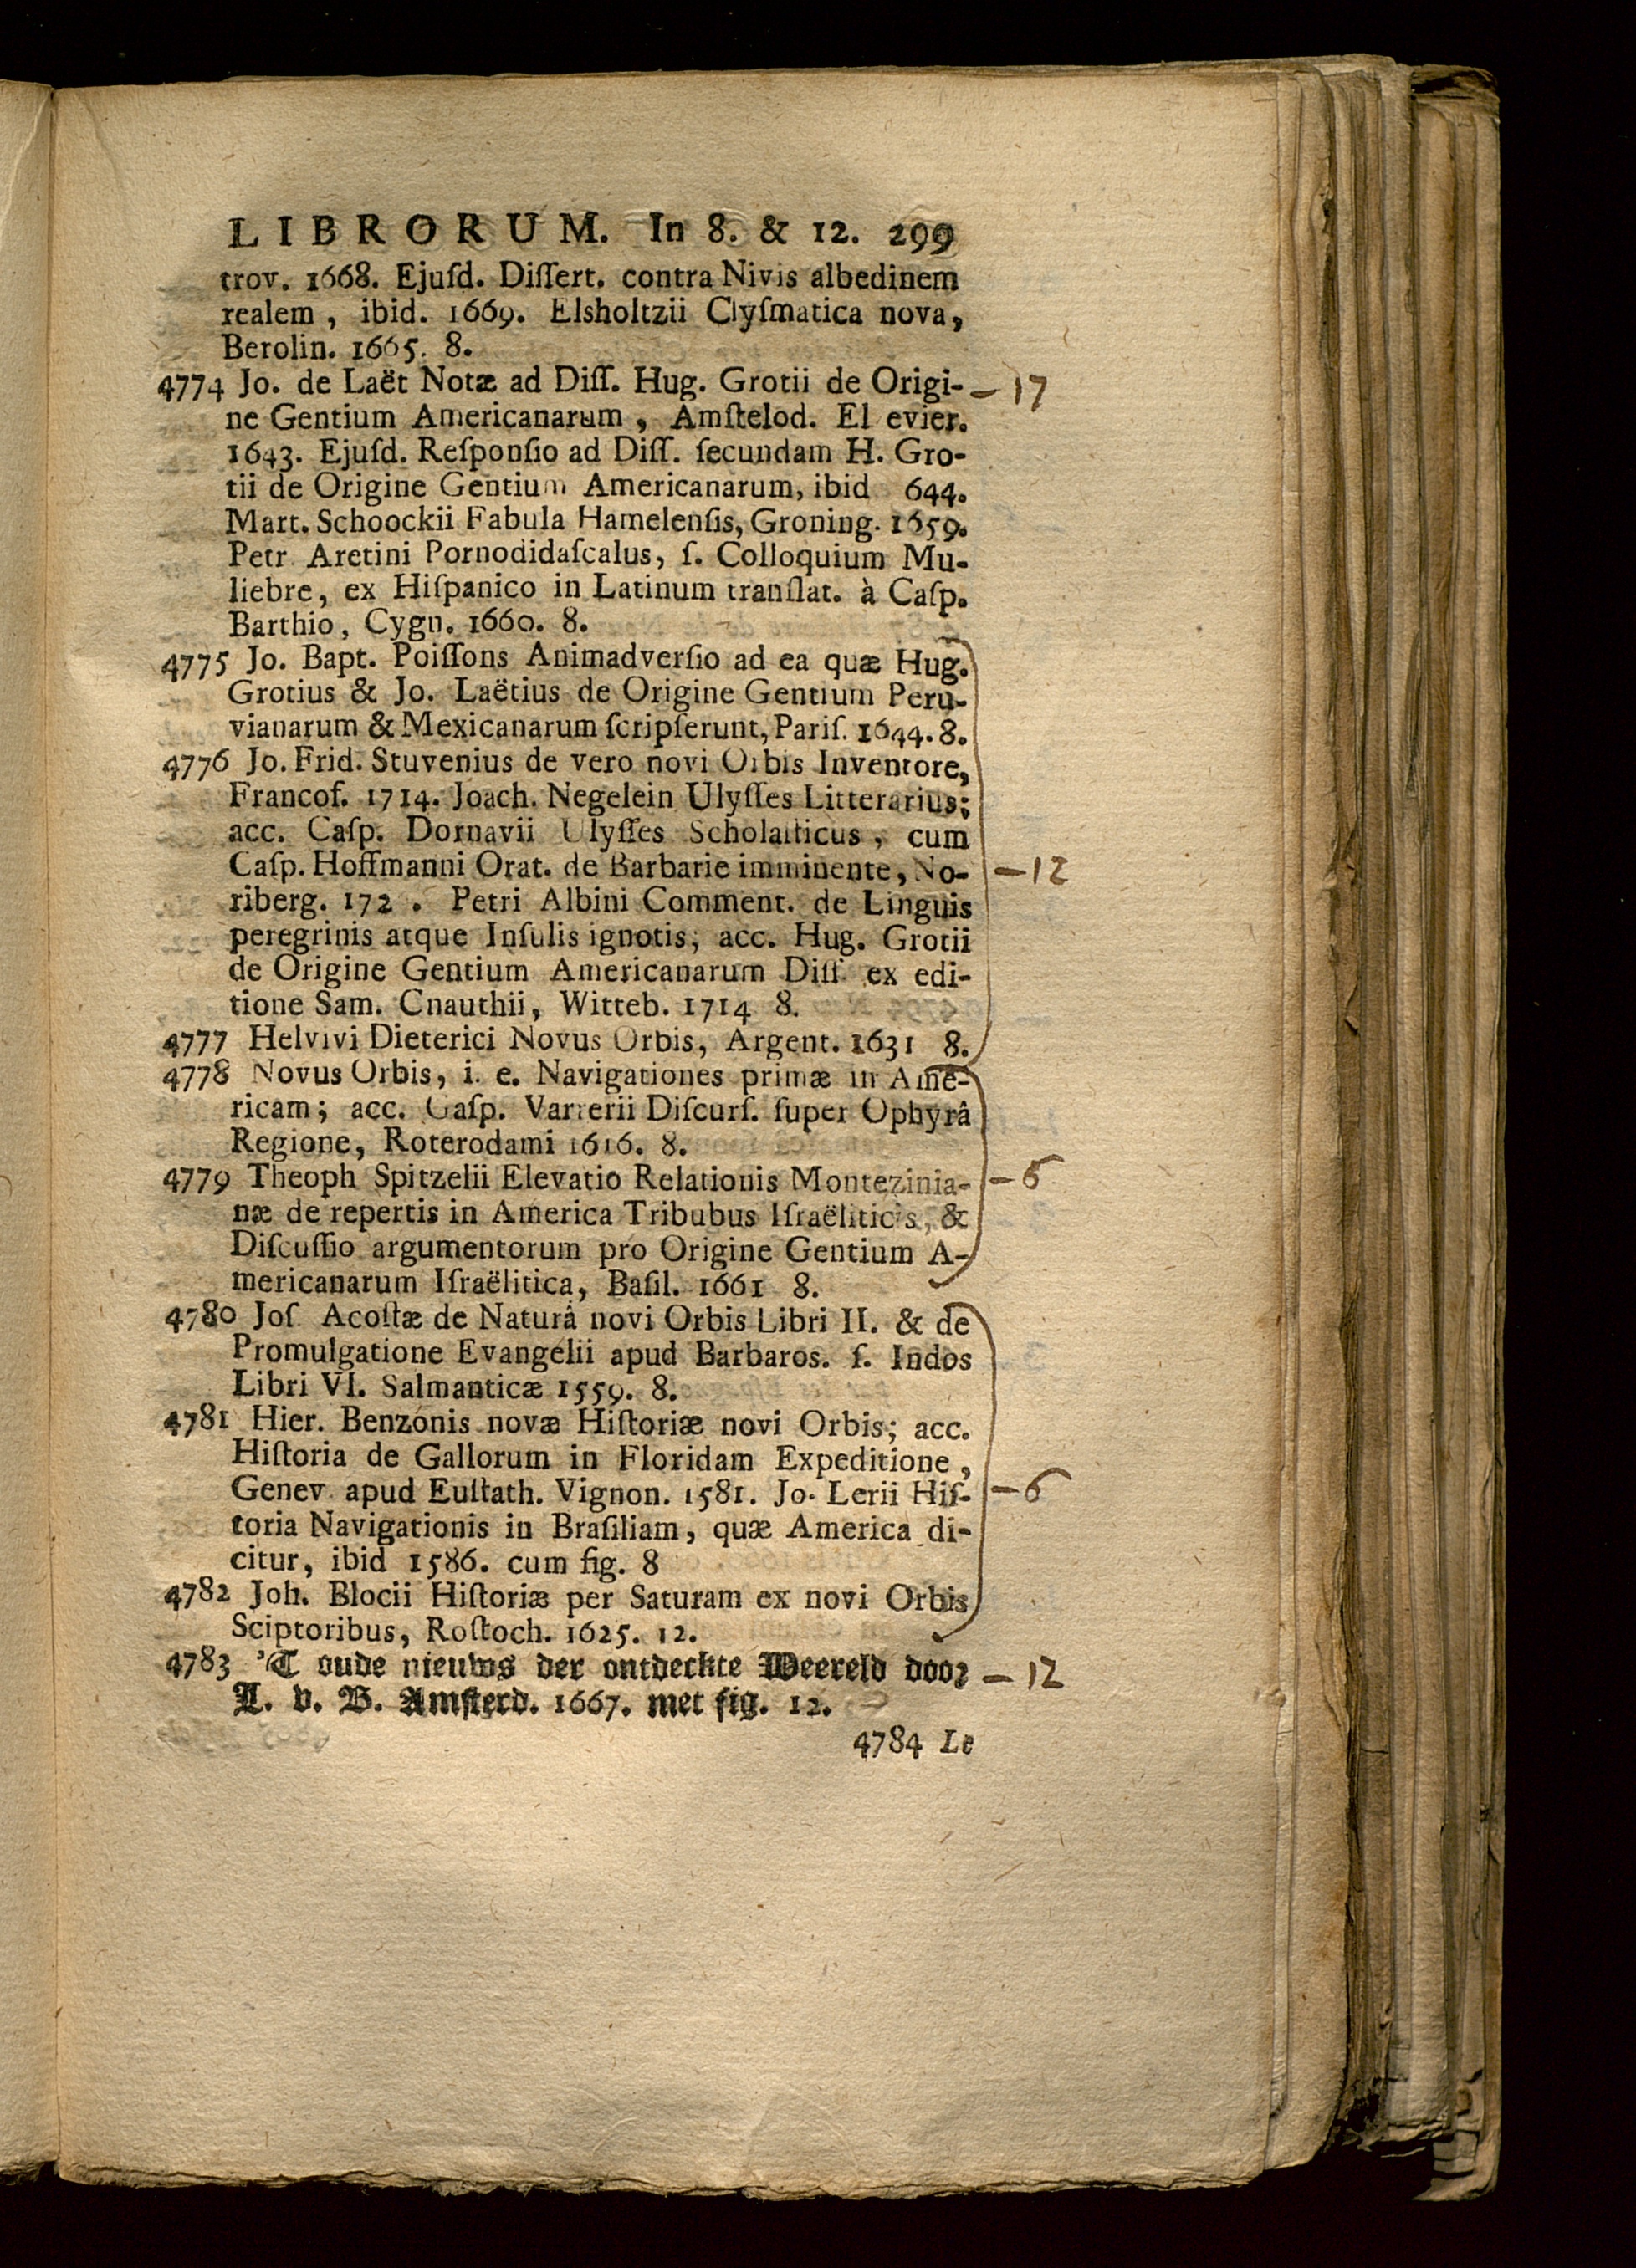 LIBRORUM. In 8. & 12. 299
trov. 1668. Ejuſd. Diſſert. contra Nivis albedinem
realem, ibid. 1669. Elsholtzii Clyſmatica nova,
Berolin. 1665. 8.
4774 Jo. de Laët Notæ ad Diſſ. Hug. Grotii de Origi- — 17
ne Gentium Americanarum, Amſtelod. El evier.
1643. Ejuſd. Reſponſio ad Diſſ. ſecundam H. Gro-
tii de Origine Gentium Americanarum, ibid 644.
Mart. Schoockii Fabula Hamelenſis, Groning. 1659.
Petr Aretini Pornodidaſcalus, ſ. Colloquium Mu-
liebre, ex Hiſpanico in Latinum tranſlat. à Caſp.
Barthio, Cygn. 1660. 8.
4775 Jo. Bapt. Poiſſons Animadverſio ad ea quæ Hug.
Grotius & Jo. Laëtius de Origine Gentium Peru-
vianarum & Mexicanarum ſcripſerunt, Pariſ. 1644. 8.
4776 Jo. Frid. Stuvenius de vero novi Orbis Inventore,
Francof. 1714. Joach. Negelein Ulyſſes Litterarius;
acc. Caſp. Dornavii Ulyſſes Scholaſticus, cum
Caſp. Hoffmanni Orat. de Barbarie imminente, No- — 12
riberg. 172 . Petri Albini Comment. de Linguis
peregrinis atque Inſulis ignotis; acc. Hug. Grotii
de Origine Gentium Americanarum Diſſ. ex edi-
tione Sam. Cnauthii, Witteb. 1714 8.
4777 Helvivi Dieterici Novus Orbis, Argent. 1631 8.
4778 Novus Orbis, i. e. Navigationes primæ in Ame-
ricam; acc. Gaſp. Varrerii Diſcurſ. ſuper Ophyrâ
Regione, Roterodami 1616. 8.
4779 Theoph Spitzelii Elevatio Relationis Montezinia- — 6
næ de repertis in America Tribubus Iſraëliticis, &
Diſcuſſio argumentorum pro Origine Gentium A-
mericanarum Iſraëlitica, Baſil. 1661 8.
4780 Joſ Acoſtæ de Naturâ novi Orbis Libri II. & de
Promulgatione Evangelii apud Barbaros. ſ. Indos
Libri VI. Salmanticæ 1559. 8.
4781 Hier. Benzonis novæ Hiſtoriæ novi Orbis; acc.
Hiſtoria de Gallorum in Floridam Expeditione,
Genev. apud Euſtath. Vignon. 1581. Jo. Lerii Hiſ- — 6
toria Navigationis in Braſiliam, quæ America di-
citur, ibid 1586. cum fig. 8
4782 Joh. Blocii Hiſtoriæ per Saturam ex novi Orbis
Sciptoribus, Roſtoch. 1625. 12.
4783 'T oude nieuws der ontdeckte Weereld door — 12
A. v. B. Amſterd. 1667. met fig. 12.
4784 Le